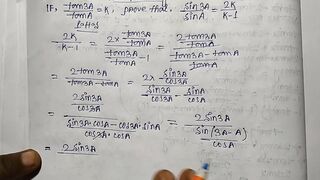 IF, tan3A/tanA = K, prove that, sin3A/sinA = 2K/K-1
2K/K-1 = 2× tan3A/tanA / tan3A/tanA - 1 = 2tan3A/tanA / tan3A-tanA/tanA
= 2tan3A/tan3A-tanA = 2× sin3A/cos3A / sin3A/cos3A - sinA/cosA
= 2sin3A/cos3A / sin3A·cosA-cos3A·sinA/cos3A·cosA = 2sin3A / sin(3A-A)/cosA
= 2sin3A